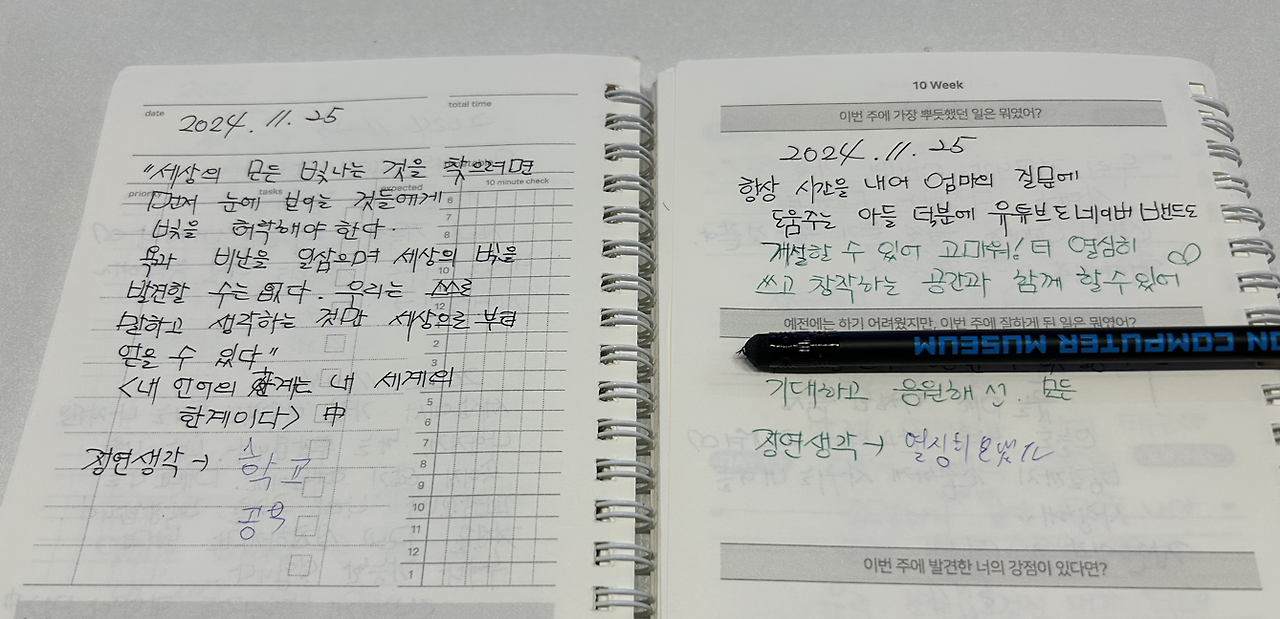 date
2024. 11. 25
total time
"세상의 모든 빛나는 것을 찾으려면
먼저 눈에 보이는 것들에게
빛을 허락해야 한다.
욕과 비난을 일삼으며 세상의 빛을
발견할 수는 없다. 우리는 스스로
말하고 생각하는 것만 세상으로 부터
얻을 수 있다"
<내 언어의 한계는 내 세계의
한계이다> 中
정연생각 →
학교
공부
priority
tasks
expected
10 minute check
6
7
8
10
12
2
3
5
6
7
8
9
10
11
12
1
10 Week
이번 주에 가장 뿌듯했던 일은 뭐였어?
2024. 11. 25
항상 시간을 내어 엄마의 질문에
도움주는 아들 덕분에 유튜브도 네이버 밴드도
개설할 수 있어 고마워! 더 열심히
쓰고 창작하는 공간과 함께 할 수 있어
예전에는 하기 어려웠지만, 이번 주에 잘하게 된 일은 뭐였어?
ON COMPUTER MUSEUM
기대하고 응원해 모든
정연생각 → 열심히
이번 주에 발견한 너의 강점이 있다면?